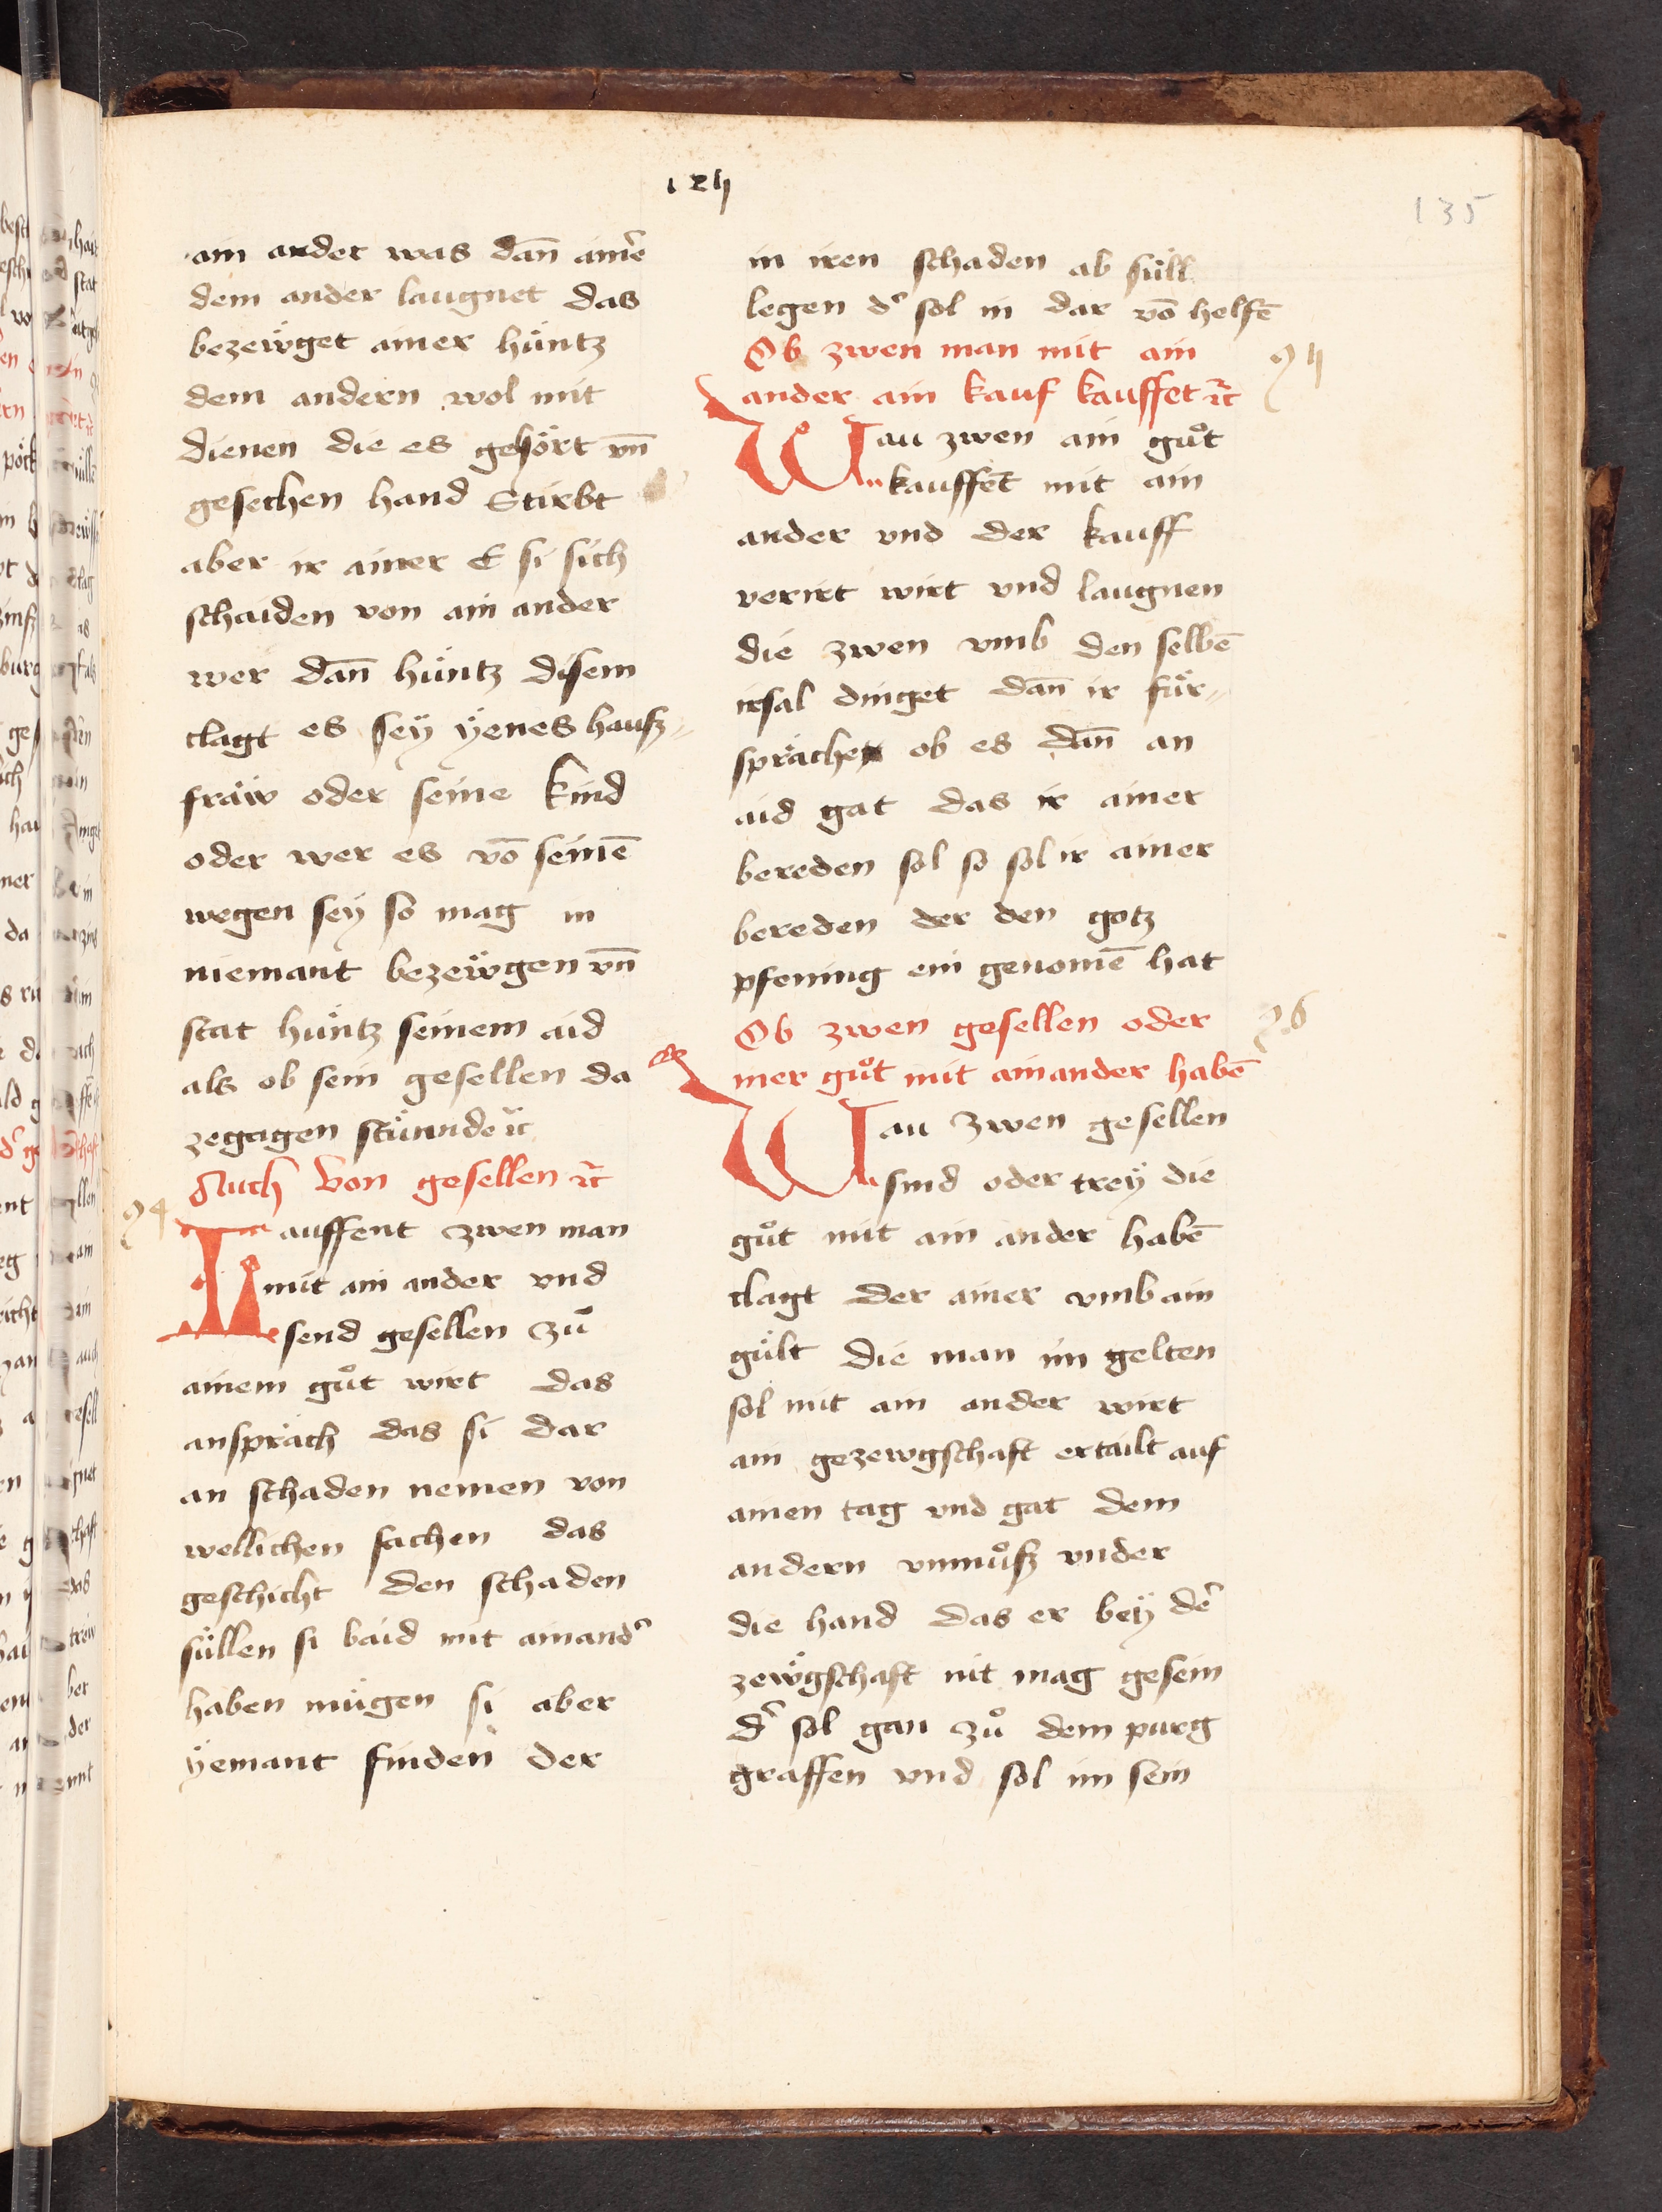 125
135
ain ander was dañ ainˀe
dem ander laugnet das
bezewͤget ainer hüntz
dem andern wol mit
dienen die es gehört vn̄
gesechen hand Stirbt
aber ir ainer E si sich
schaiden von ain ander
wer dañ hüntz disem
clagt es seÿ ÿenes hausz„
fräw oder seine kind
oder wer es vō seinē
wegen seÿ so mag in
niemant bezewͤgen vn̄
stat hüntz seinem aid
als ob sein gesellen da
zegagen stüennde ꝛc̄
Auch von gesellen ꝛc̄
94
Kauffent zwen man
mit ain ander vnd
send gesellen zuͦ
ainem guͦt wirt das
anspräch das si dar
an schaden nemen von
wellichen sachen das
geschicht den schaden
süllen si baid mit ainandˀ
haben mügen si aber
ÿemant finden der
in iren schaden ab süll
legen dˀ sol in dar vō helfē
Ob zwen man mit ain
ander ain kauf kauffet ꝛc̄
95
Wau zwen ain guͦt
kauffēt mit ain
ander vnd der kauff
verirt wirt vnd laugnen
die zwen vmb den selbē
irsal dinget dañ ir für„
spräche ob es dañ an
aid gat das ir ainer
bereden sol so sol ir ainer
bereden der den gotz
pfening ein genomē hat
Ob zwen gesellen oder
mer guͦt mit ainander habē
96
Wau zwen gesellen
sind oder treÿ die
guͦt mit ain ander habē
clagt der ainer vmb ain
gült die man im gelten
sol mit ain ander wirt
ain gezewgschaft ertailt auf
ainen tag vnd gat dem
andern vnmuͦsz vnder
die hand das er beÿ dēˀ
zewͤgschaft nit mag gesein
dˀ sol gan zuͦ dem purg
graffen vnd sol im sein